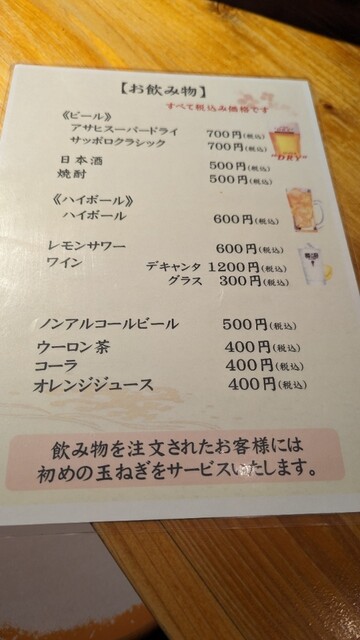 【お飲み物】
すべて税込み価格です
《ビール》
アサヒスーパードライ 700円(税込)
サッポロクラシック 700円(税込)
"DRY"
日本酒 500円(税込)
焼酎 500円(税込)
《ハイボール》
ハイボール 600円(税込)
レモンサワー 600円(税込)
ワイン デキャンタ 1200円(税込)
グラス 300円(税込)
ノンアルコールビール 500円(税込)
ウーロン茶 400円(税込)
コーラ 400円(税込)
オレンジジュース 400円(税込)
飲み物を注文されたお客様には
初めの玉ねぎをサービスいたします。